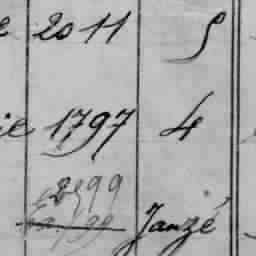 2011 5
ie 1797 4
2899
Janzé